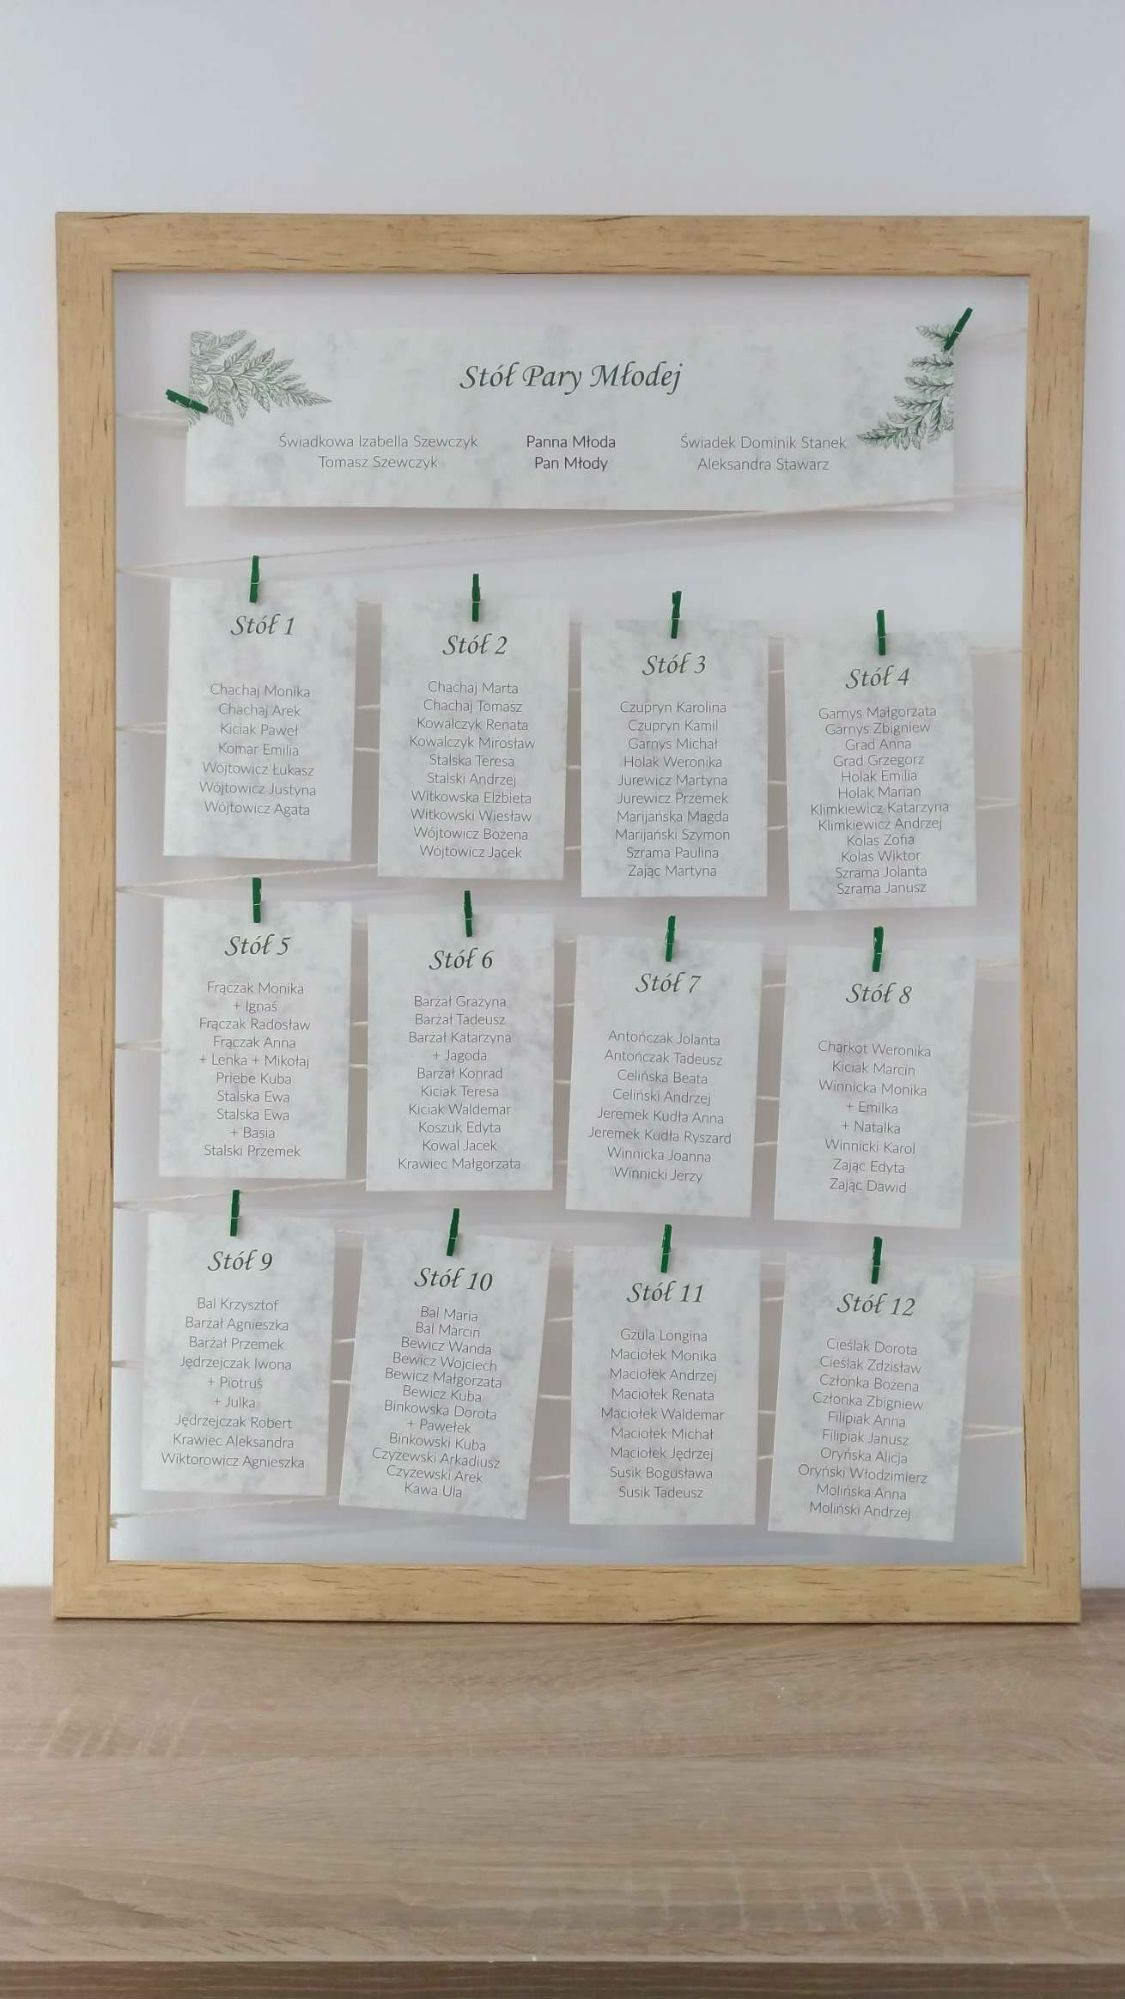 Stół Pary Młodej
Świadkowa Izabella Szewczyk
Tomasz Szewczyk
Panna Młoda
Pan Młody
Świadek Dominik Stanek
Aleksandra Stawarz
Stół 1
Chachaj Monika
Chachaj Arek
Kiciak Paweł
Komar Emilia
Wójtowicz Łukasz
Wójtowicz Justyna
Wójtowicz Agata
Stół 2
Chachaj Marta
Chachaj Tomasz
Kowalczyk Renata
Kowalczyk Mirosław
Stalska Teresa
Stalski Andrzej
Witkowska Elżbieta
Witkowski Wiesław
Wójtowicz Bożena
Wójtowicz Jacek
Stół 3
Czupryn Karolina
Czupryn Kamil
Garnys Michał
Holak Weronika
Jurewicz Martyna
Jurewicz Przemek
Marijańska Magda
Marijański Szymon
Szrama Paulina
Zając Martyna
Stół 4
Garnys Małgorzata
Garnys Zbigniew
Grad Anna
Grad Grzegorz
Holak Emilia
Holak Marian
Klimkiewicz Katarzyna
Klimkiewicz Andrzej
Kolas Zofia
Kolas Wiktor
Szrama Jolanta
Szrama Janusz
Stół 5
Frączak Monika
+ Ignaś
Frączak Radosław
Frączak Anna
+ Lenka + Mikołaj
Priebe Kuba
Stalska Ewa
Stalska Ewa
+ Basia
Stalski Przemek
Stół 6
Barzał Grażyna
Barzał Tadeusz
Barzał Katarzyna
+ Jagoda
Barzał Konrad
Kiciak Teresa
Kiciak Waldemar
Koszuk Edyta
Kowal Jacek
Krawiec Małgorzata
Stół 7
Antończak Jolanta
Antończak Tadeusz
Celińska Beata
Celiński Andrzej
Jeremek Kudła Anna
Jeremek Kudła Ryszard
Winnicka Joanna
Winnicki Jerzy
Stół 8
Charkot Weronika
Kiciak Marcin
Winnicka Monika
+ Emilka
+ Natalka
Winnicki Karol
Zając Edyta
Zając Dawid
Stół 9
Bal Krzysztof
Barzał Agnieszka
Barzał Przemek
Jędrzejczak Iwona
+ Piotruś
+ Julka
Jędrzejczak Robert
Krawiec Aleksandra
Wiktorowicz Agnieszka
Stół 10
Bal Maria
Bal Marcin
Bewicz Wanda
Bewicz Wojciech
Bewicz Małgorzata
Bewicz Kuba
Binkowska Dorota
+ Pawełek
Binkowski Kuba
Czyżewski Arkadiusz
Czyżewski Arek
Kawa Ula
Stół 11
Gzula Longina
Maciołek Monika
Maciołek Andrzej
Maciołek Renata
Maciołek Waldemar
Maciołek Michał
Maciołek Jędrzej
Susik Bogusława
Susik Tadeusz
Stół 12
Cieślak Dorota
Cieślak Zdzisław
Członka Bożena
Członka Zbigniew
Filipiak Anna
Filipiak Janusz
Oryńska Alicja
Oryński Włodzimierz
Molińska Anna
Moliński Andrzej